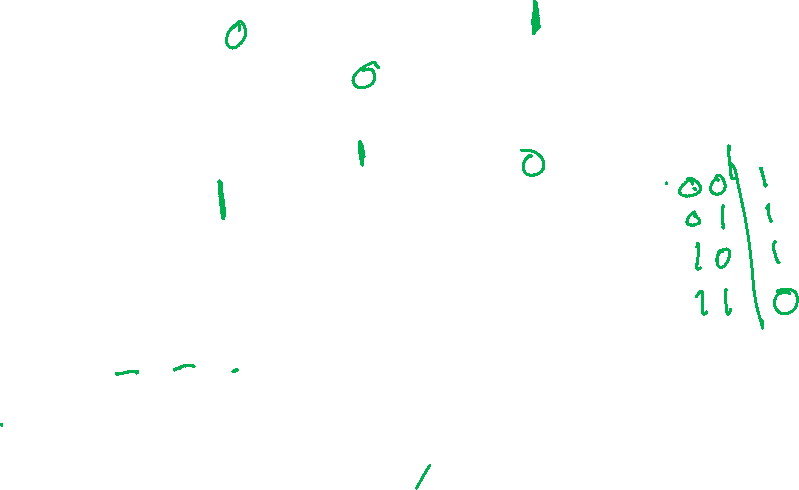 0 1
0
1 0
1
0 0 | 1
0 1 | 1
1 0 | 1
1 1 | 0
- - .
/